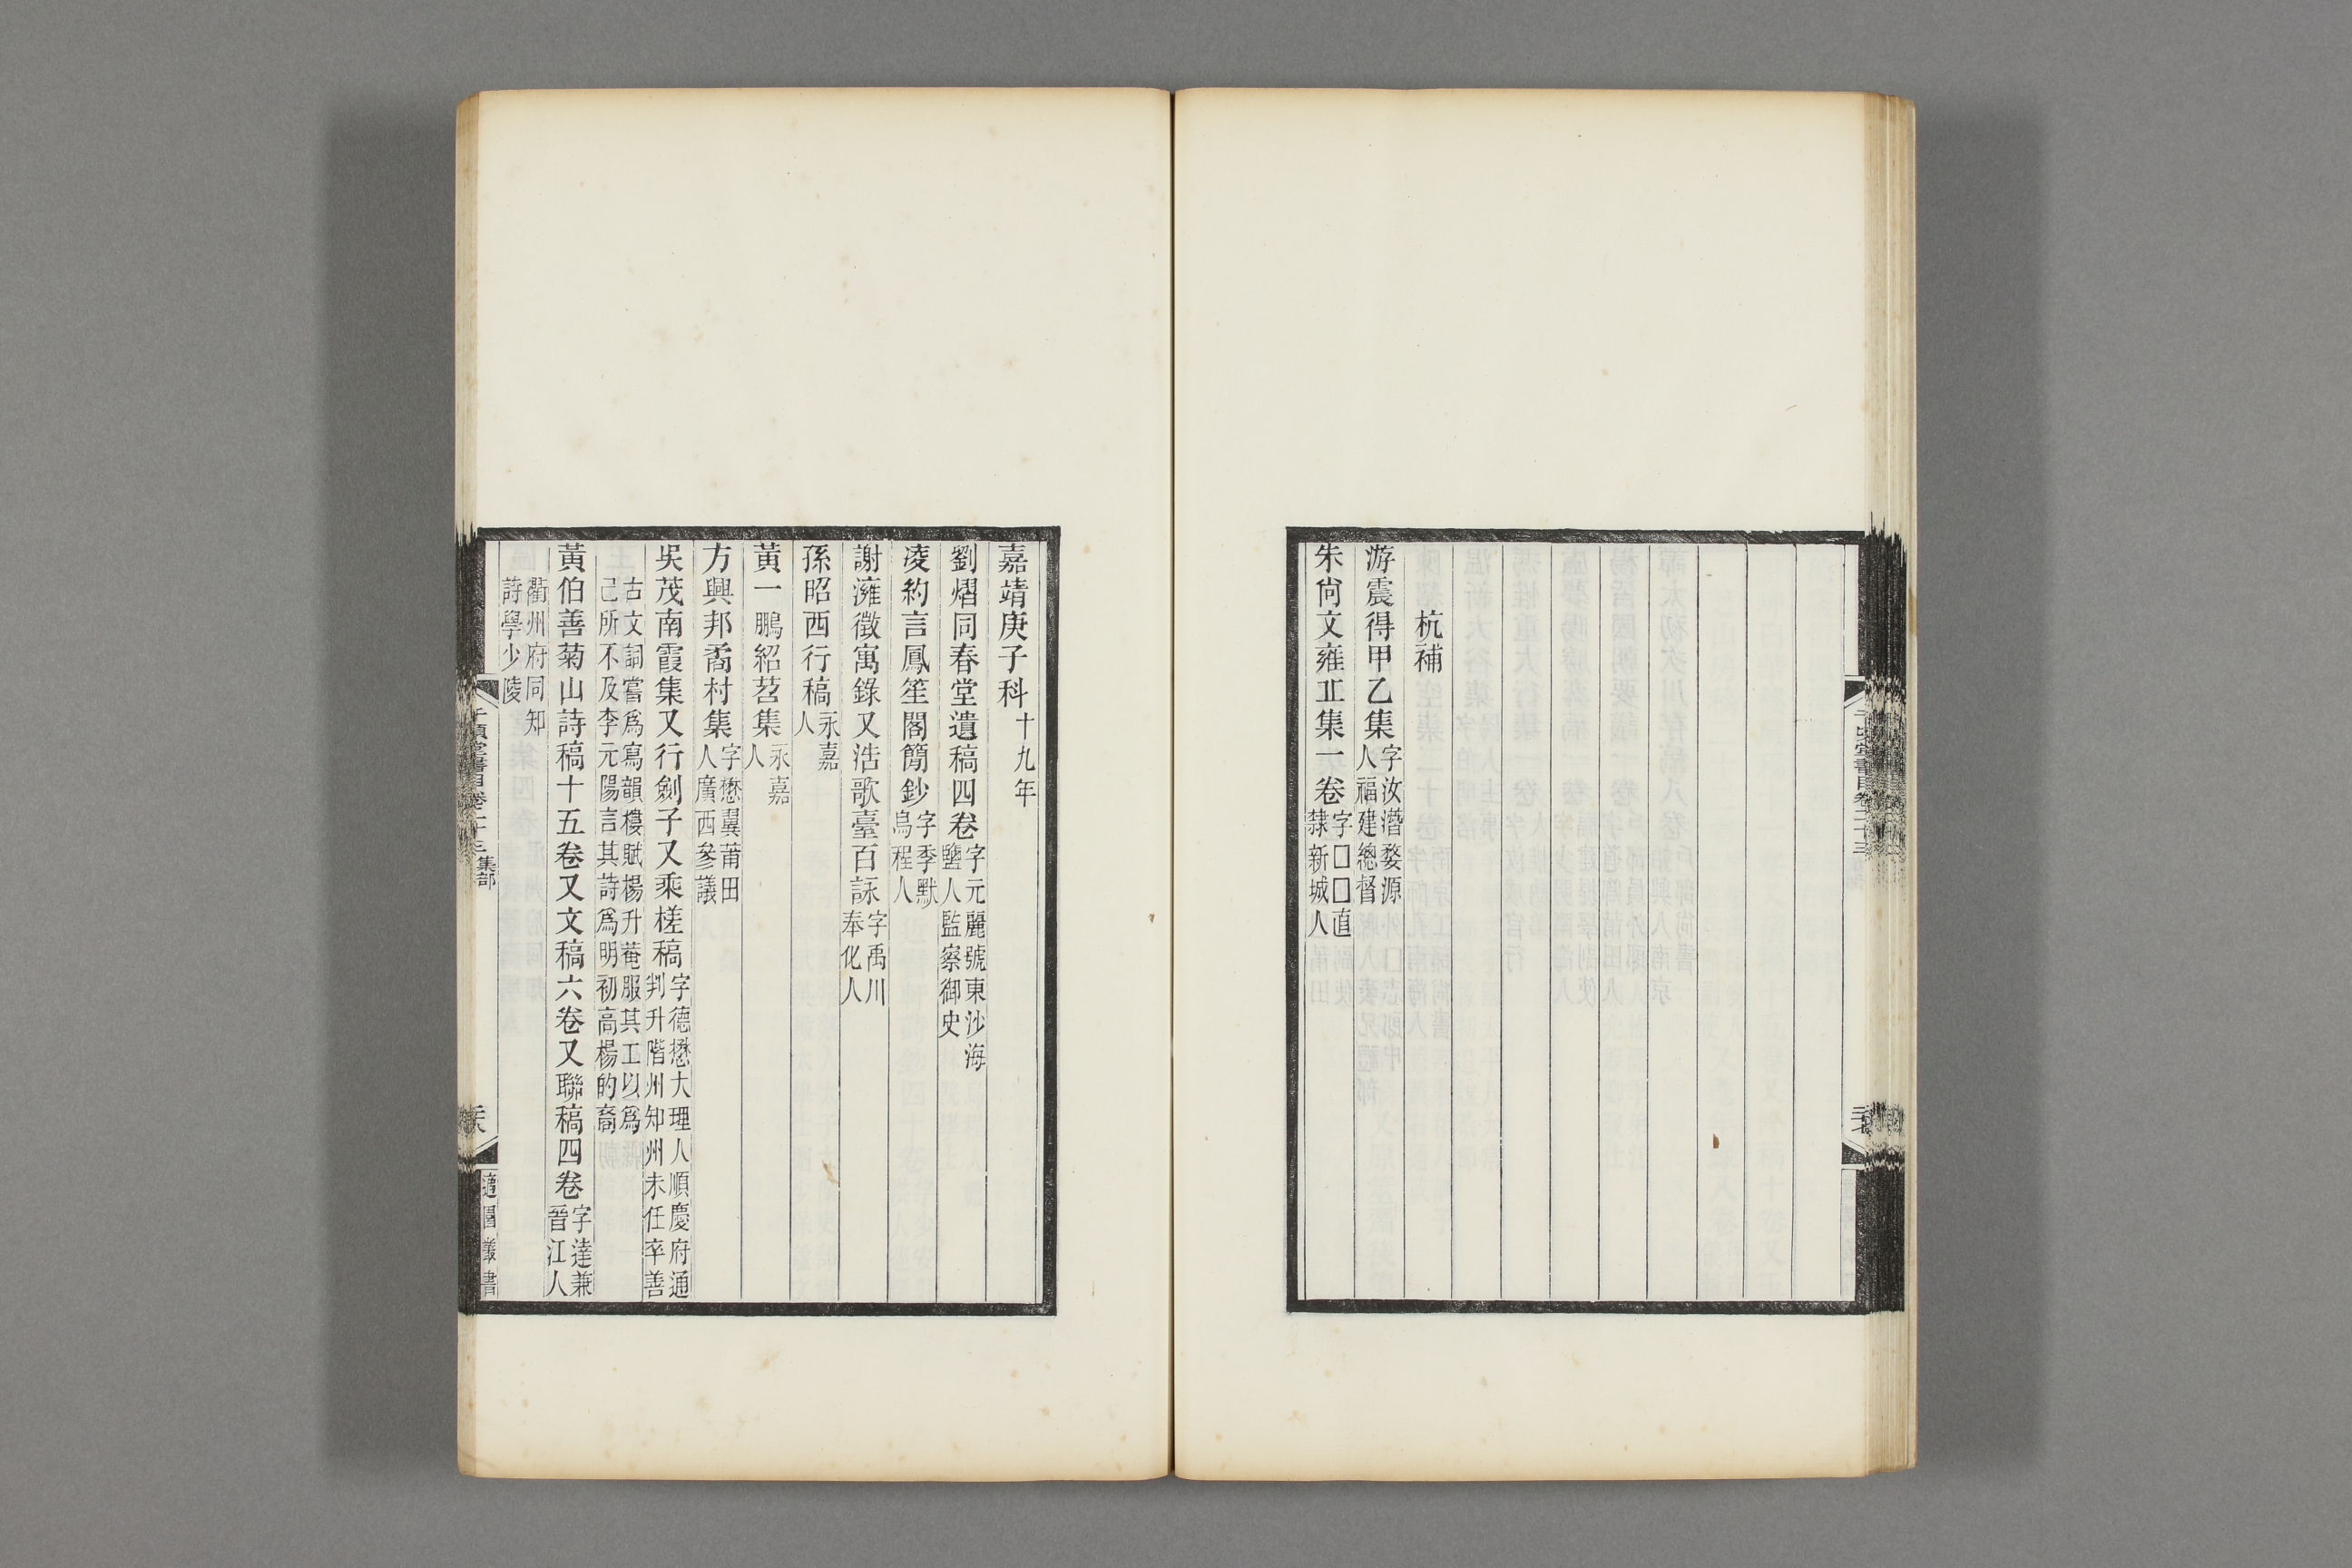 杭補
游震得甲乙集字汝潛婺源人福建總督
朱尙文雍丘集一卷字□□直隸新城人
嘉靖庚子科十九年
劉熠同春堂遺稿四卷字元麗號東沙海鹽人監察御史
凌約言鳳笙閣簡鈔字季默烏程人
謝瀖徵寓錄又浩歌臺百詠字禹川奉化人
孫昭西行稿永嘉人
黃一鵬紹莒集永嘉人
方興邦矞村集字懋翼莆田人廣西參議
吳茂南霞集又行劍子又乘槎稿字德懋大理人順慶府通判升階州知州未任卒善
古文詞嘗爲寫韻樓賦楊升菴服其工以爲己所不及李元陽言其詩爲明初高楊的裔
黃伯善菊山詩稿十五卷又文稿六卷又聯稿四卷字達兼晉江人
衢州府同知詩學少陵
千頃堂書目卷二十三集部